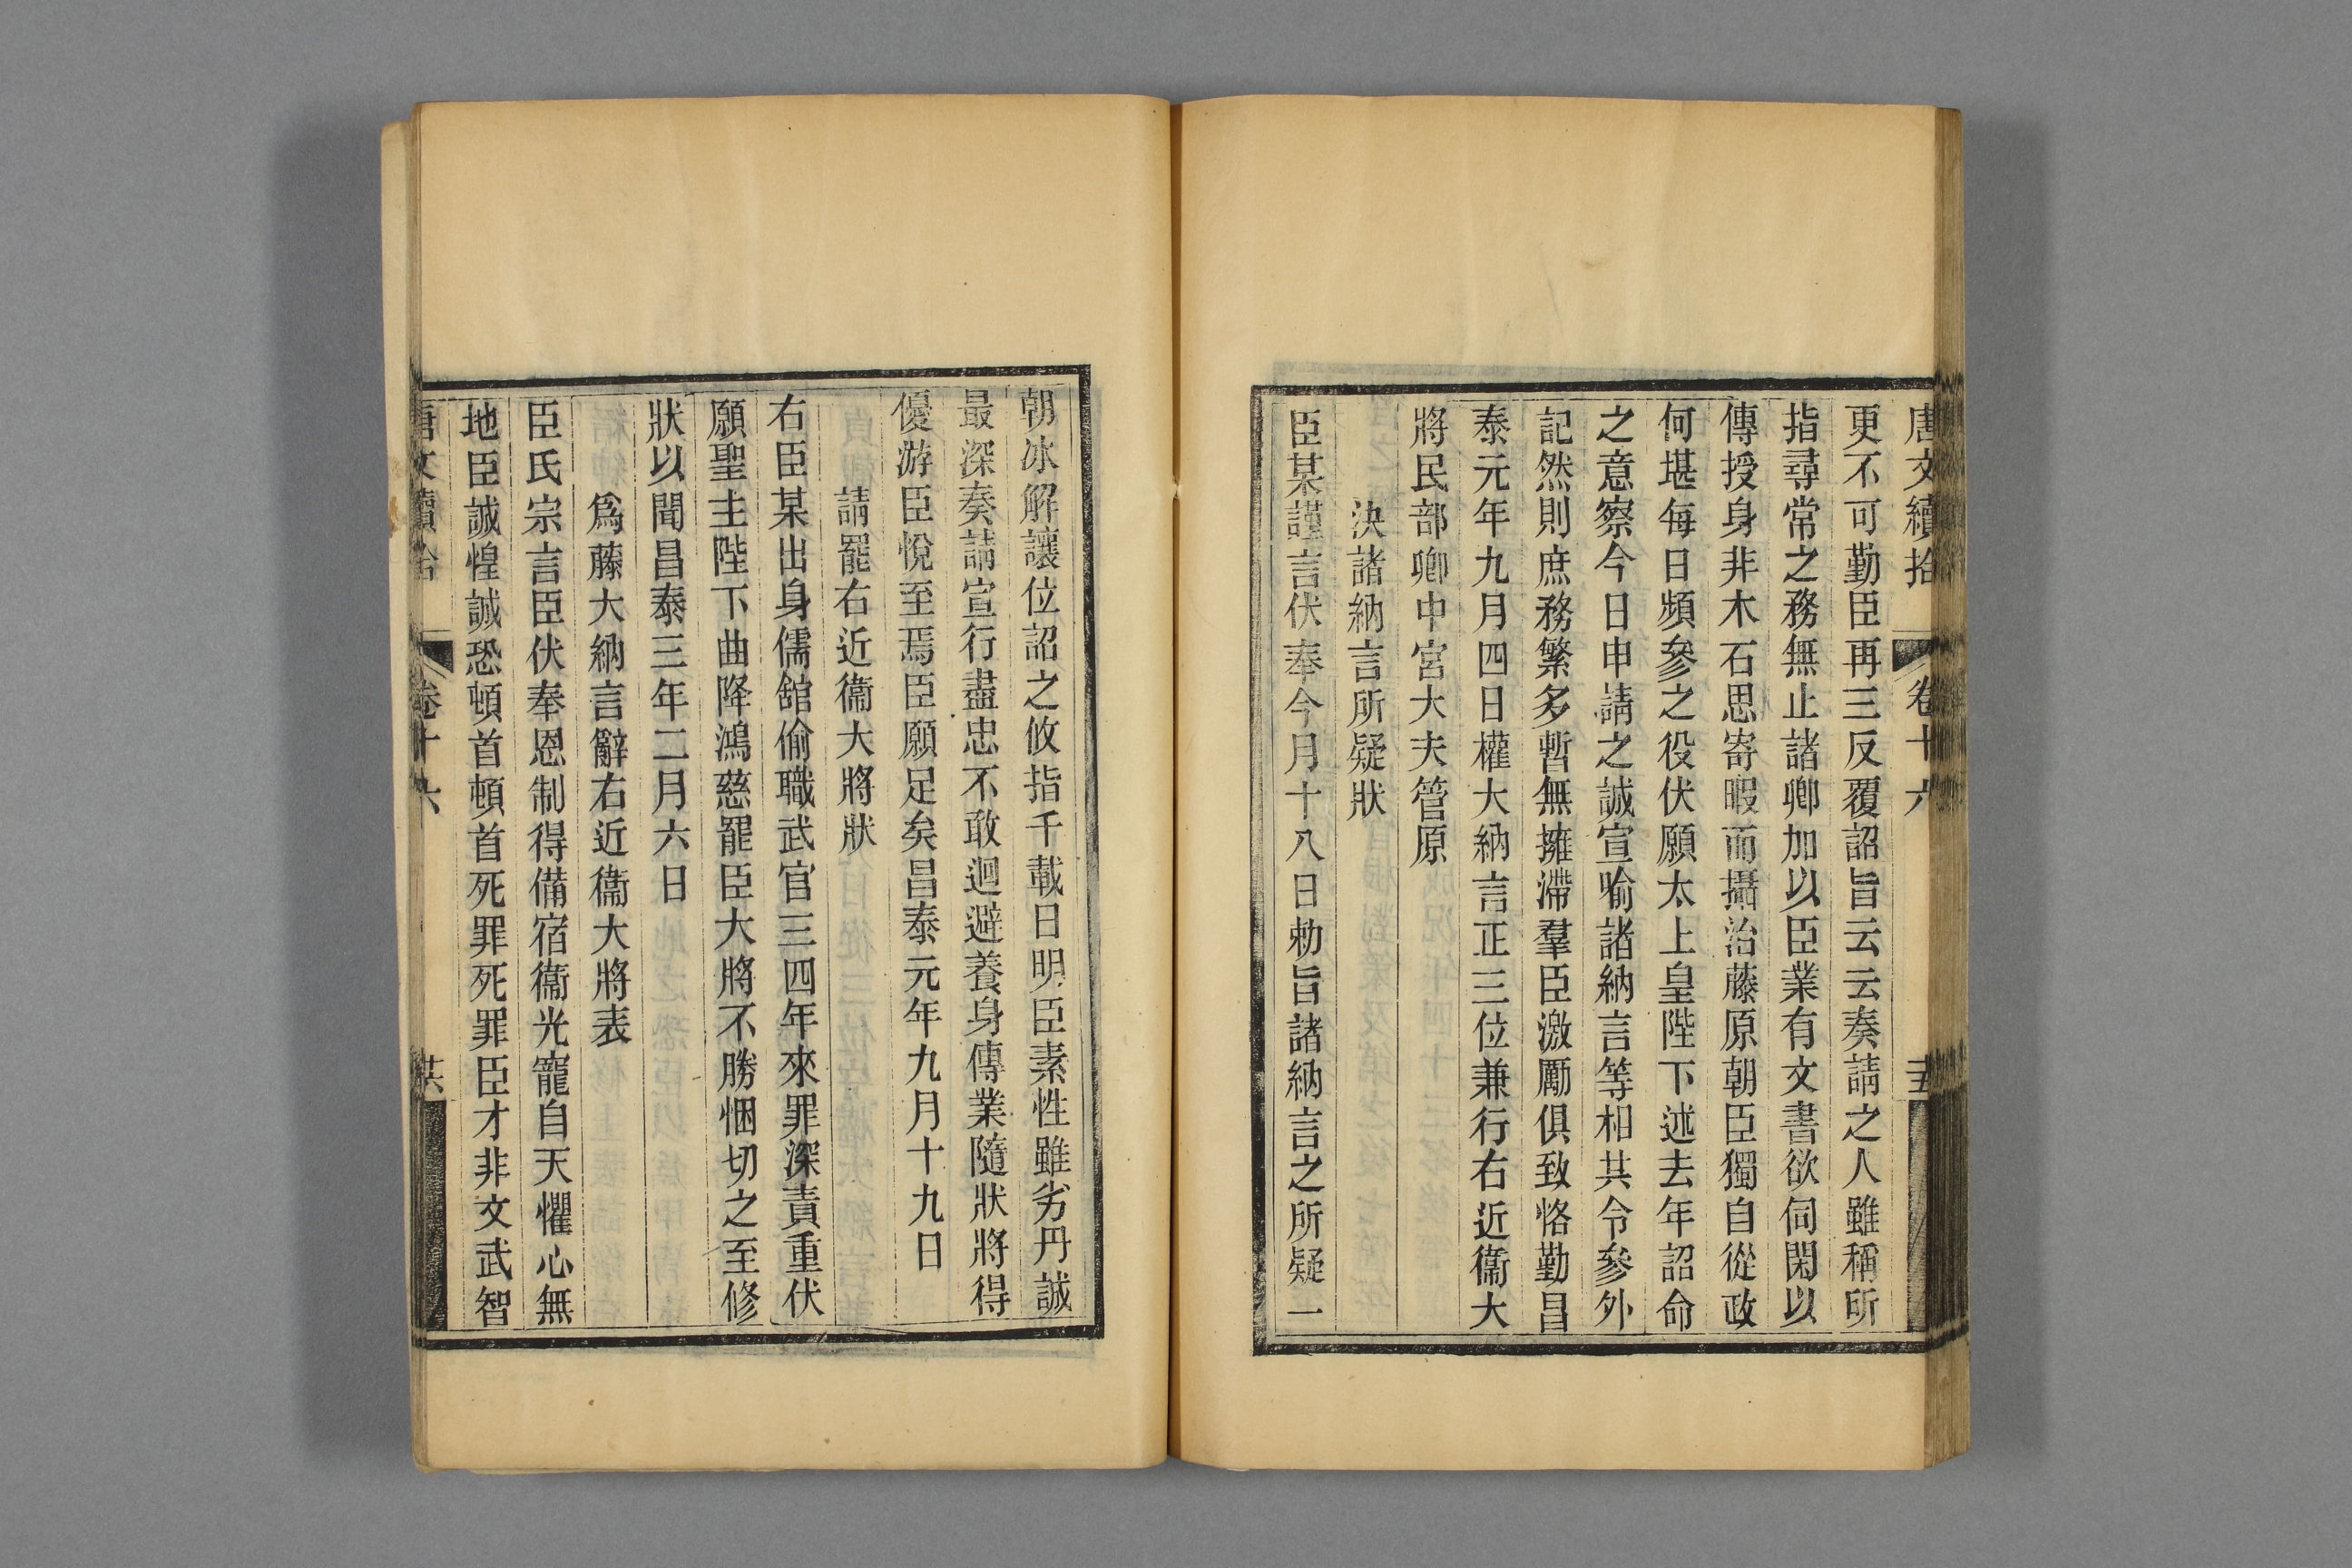 唐文續拾 卷十六 五
更不可勤臣再三反覆詔旨云云奏請之人雖稱所
指尋常之務無止諸卿加以臣業有文書欲伺閑以
傳授身非木石思寄暇而攝治藤原朝臣獨自從政
何堪每日頻參之役伏願太上皇陛下述去年詔命
之意察今日申請之誠宣喻諸納言等相共令參外
記然則庶務繁多暫無擁滯羣臣激勵俱致恪勤昌
泰元年九月四日權大納言正三位兼行右近衞大
將民部卿中宮大夫管原
決諸納言所疑狀
臣某謹言伏奉今月十八日勅旨諸納言之所疑一
朝冰解讓位詔之攸指千載日明臣素性雖劣丹誠
最深奏請宣行盡忠不敢迴避養身傳業隨狀將得
優游臣悅至焉臣願足矣昌泰元年九月十九日
請罷右近衞大將狀
右臣某出身儒館偷職武官三四年來罪深責重伏
願聖主陛下曲降鴻慈罷臣大將不勝悃切之至修
狀以聞昌泰三年二月六日
爲藤大納言辭右近衞大將表
臣氏宗言臣伏奉恩制得備宿衞光寵自天懼心無
地臣誠惶誠恐頓首頓首死罪死罪臣才非文武智
唐文續拾 卷十六